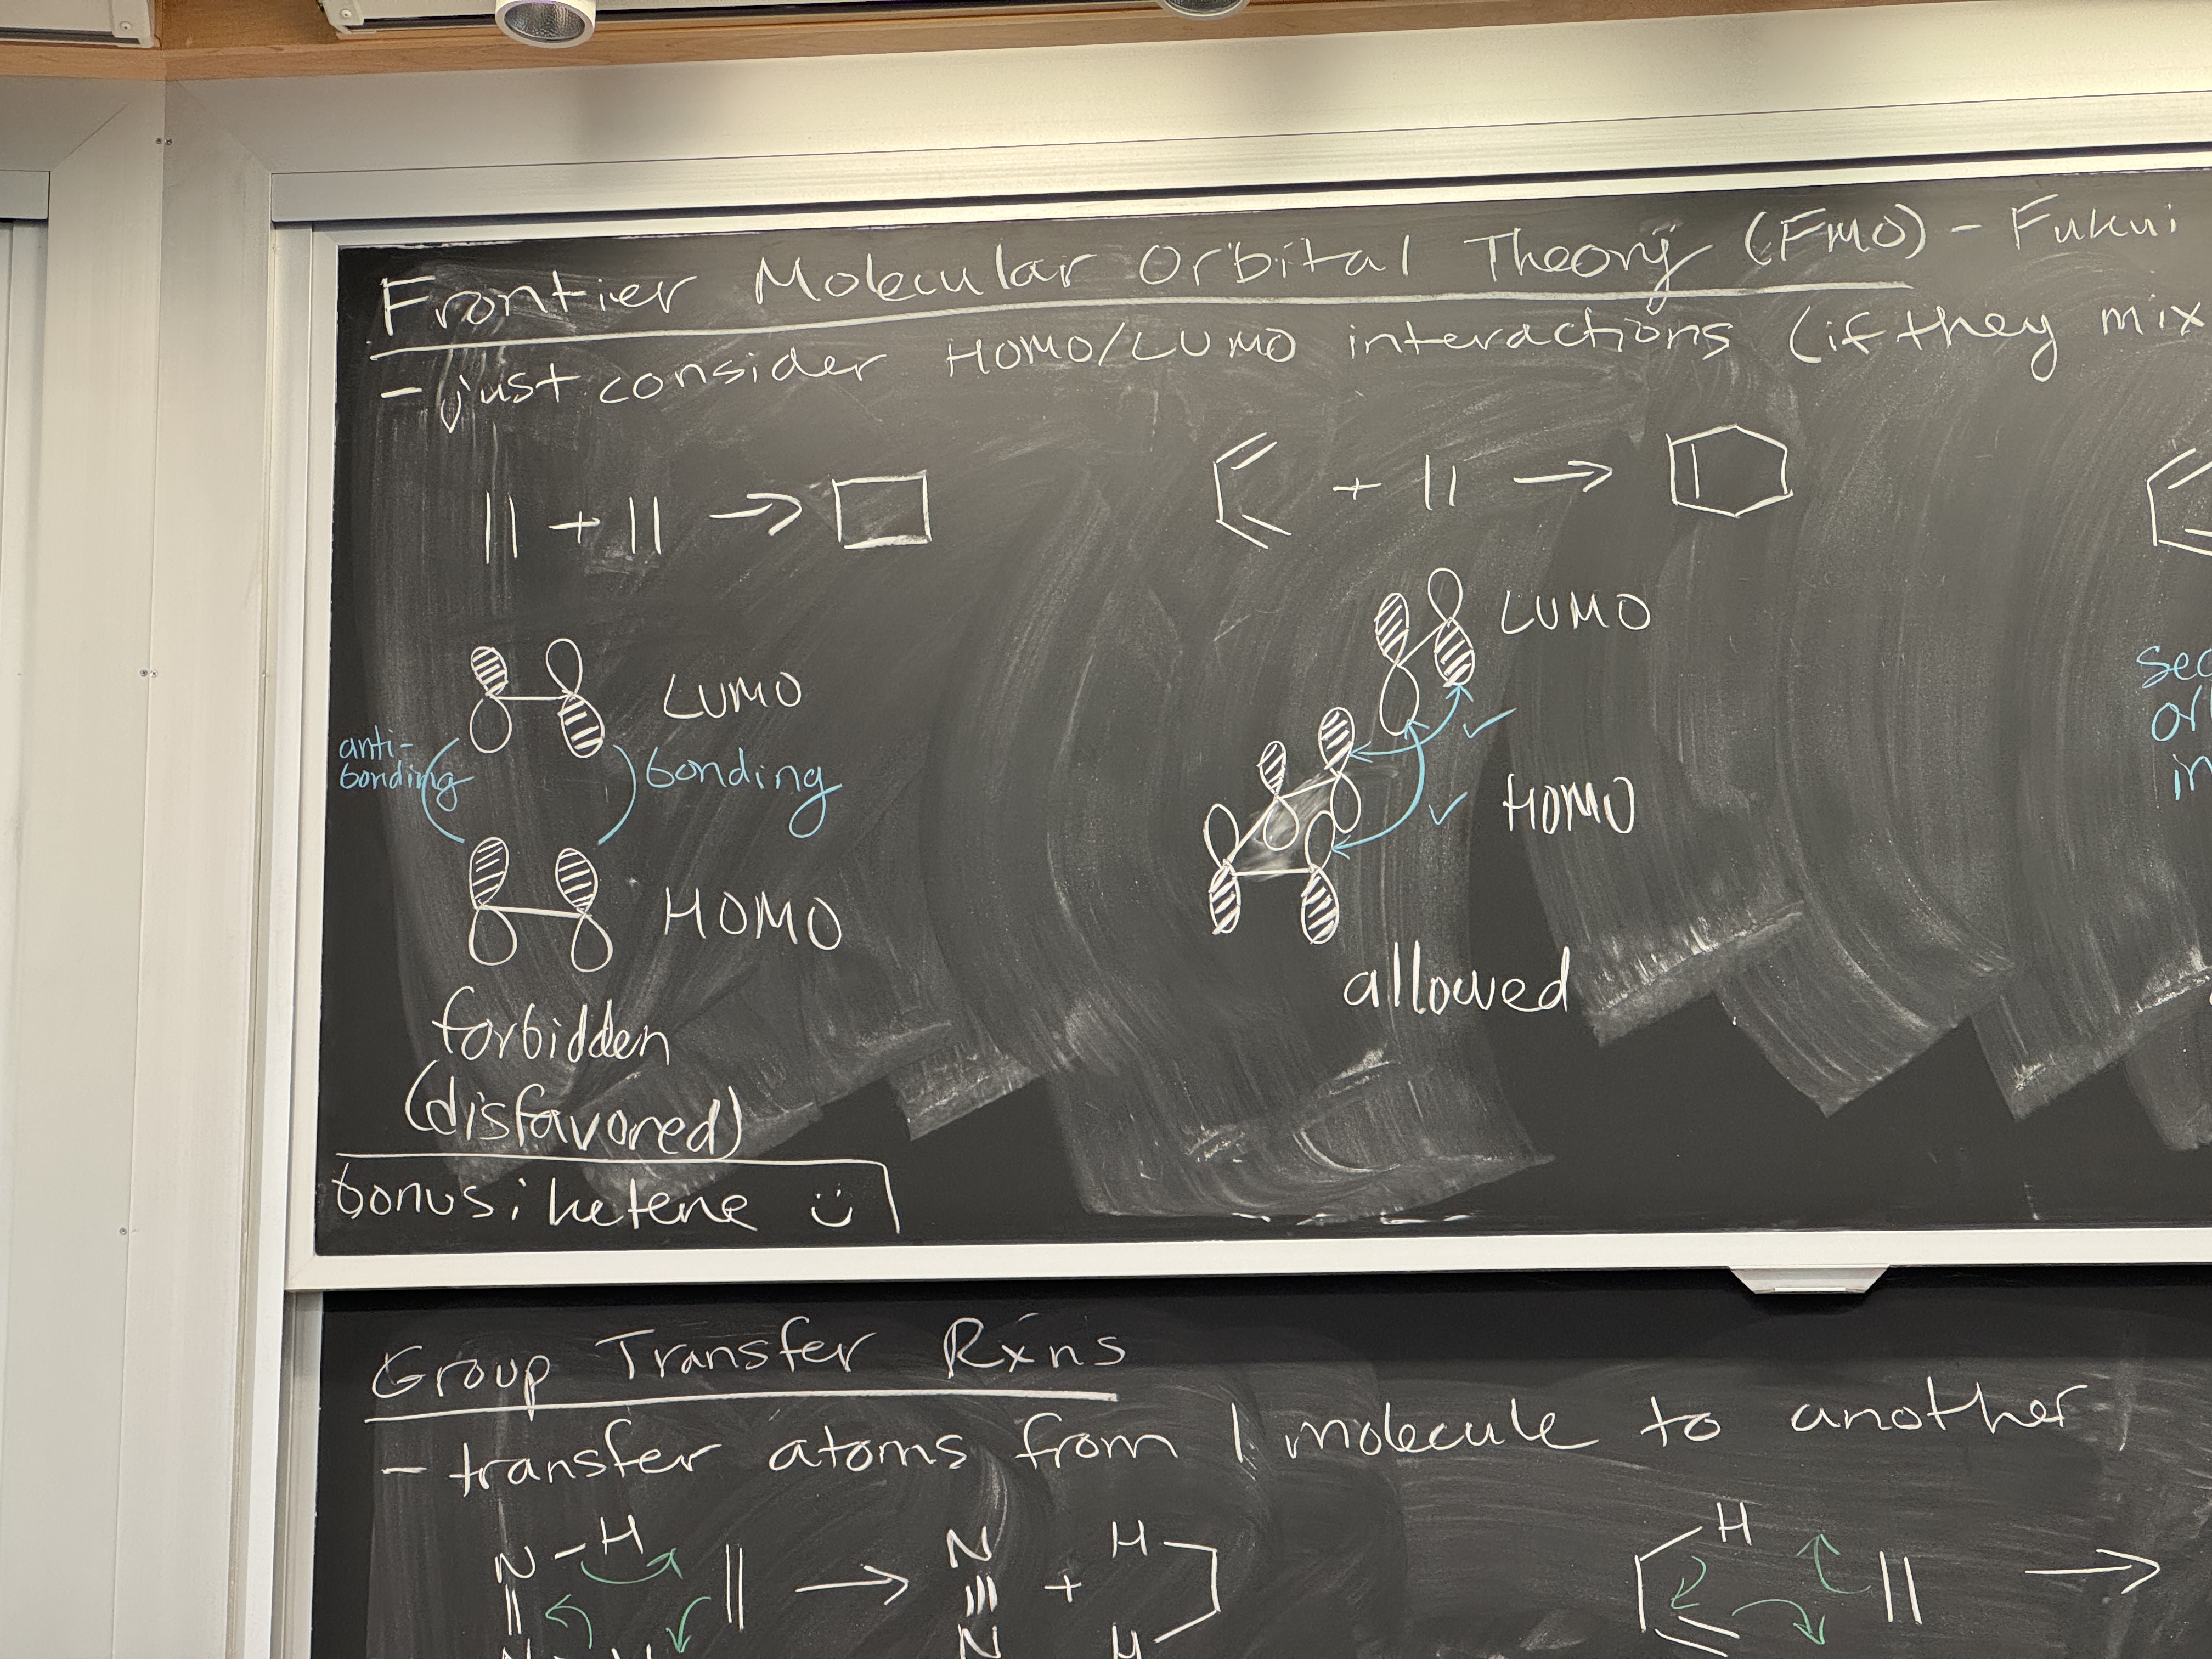 Frontier Molecular Orbital Theory (FMO) - Fukui
- just consider HOMO/LUMO interactions (if they mix
|| + || → □
+ || →
LUMO
anti-
bonding
bonding
HOMO
forbidden
(disfavored)
bonus: ketene :)
LUMO
✓
✓ HOMO
allowed
sec
or
in
Group Transfer Rxns
- transfer atoms from 1 molecule to another
N-H
N
N
+
H
H
H